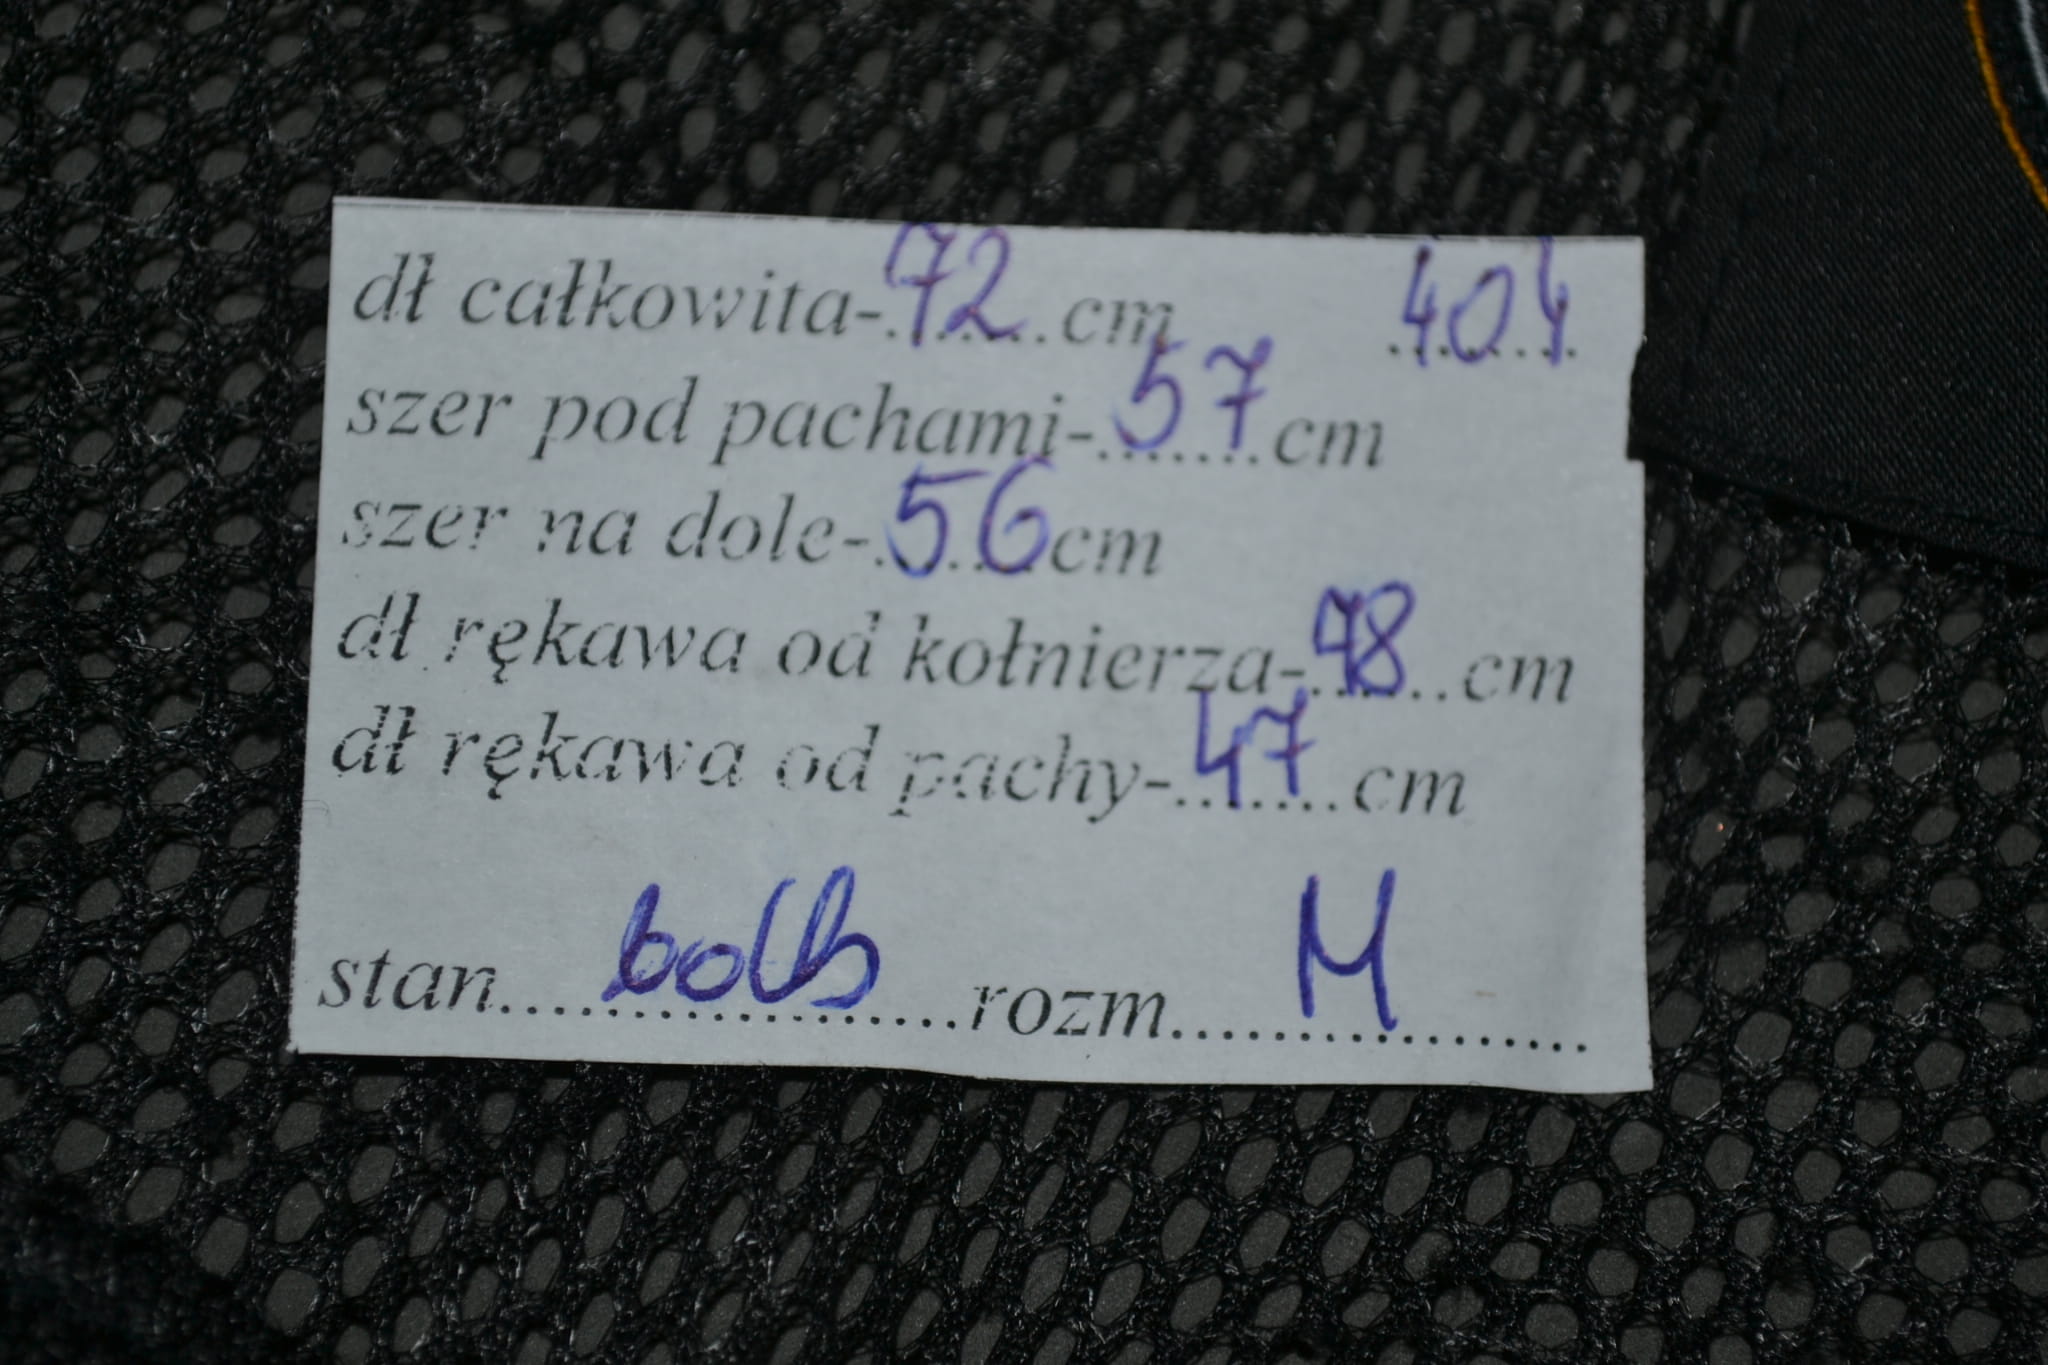 dł całkowita-72 cm 404
szer pod pachami-57 cm
szer na dole-56 cm
dł rękawa od kołnierza-78 cm
dł rękawa od pachy-47 cm
stan.................rozm M